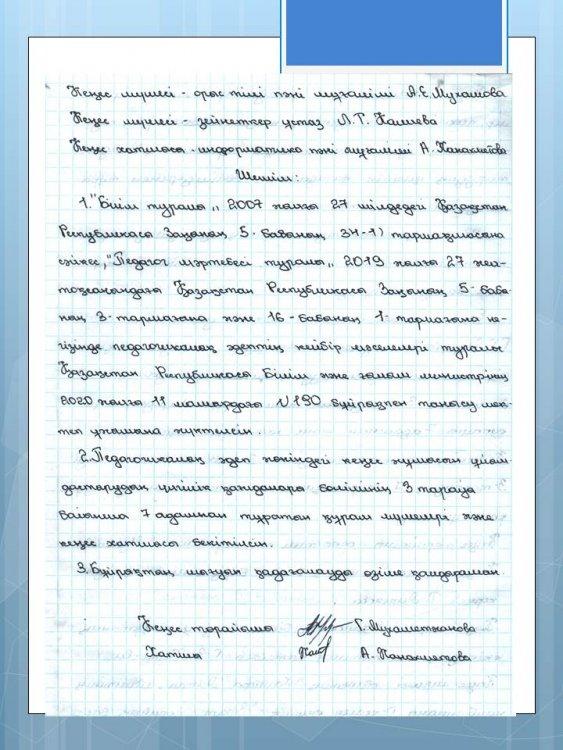 Кеңес мүшесі - орыс тілі пәні мұғалімі А.Е.Мухашова
Кеңес мүшесі - зейнеткер ұстаз Л.Т. Калиева
Кеңес хатшысы - информатика пәні мұғалімі А.
Шешім:
1. "Білім туралы" 2007 жылғы 27 шілдедегі Қазақстан
Республикасы Заңының 5-бабының 34-1) тармақшасына
сәйкес, "Педагог мәртебесі туралы" 2019 жылғы 27 жел-
тоқсанындағы Қазақстан Республикасы Заңының 5-баб-
ның 3-тармағына және 16-бабының 1-тармағына не-
гізінде педагогикалық әдептің кейбір мәселелері туралы
Қазақстан Республикасы Білім және ғылым министрінің
2020 жылғы 11 мамырдағы №190 бұйрықпен танысу мек-
теп ұжымына жүктелсін.
2. Педагогикалық әдеп жөніндегі кеңес жұмысын ұйым-
дастырудың үлгілік қағидалары бөлімінің 3 тарауы
бойынша 7 адамнан тұратын құрам мүшелері және
кеңес хатшысы бекітілсін.
3. Бұйрықтың шығуын қадағалауды өзіме қалдырамын
Кеңес төрайымы Г. Мухаметжанова
Хатшы А.